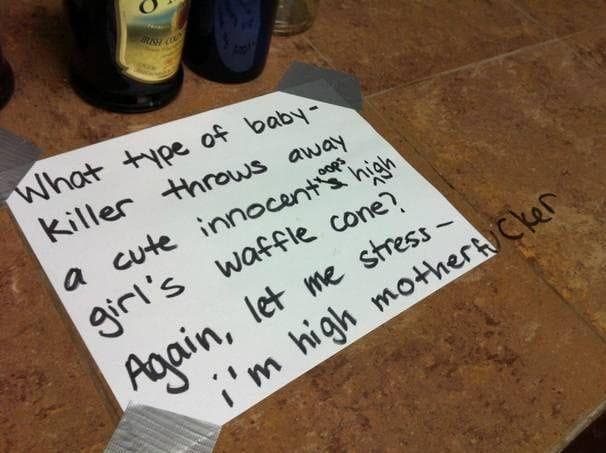 IRISH
What type of baby-
killer throws away
oops
a cute innocent high
girl's waffle cone?
Again, let me stress-
i'm high motherfucker